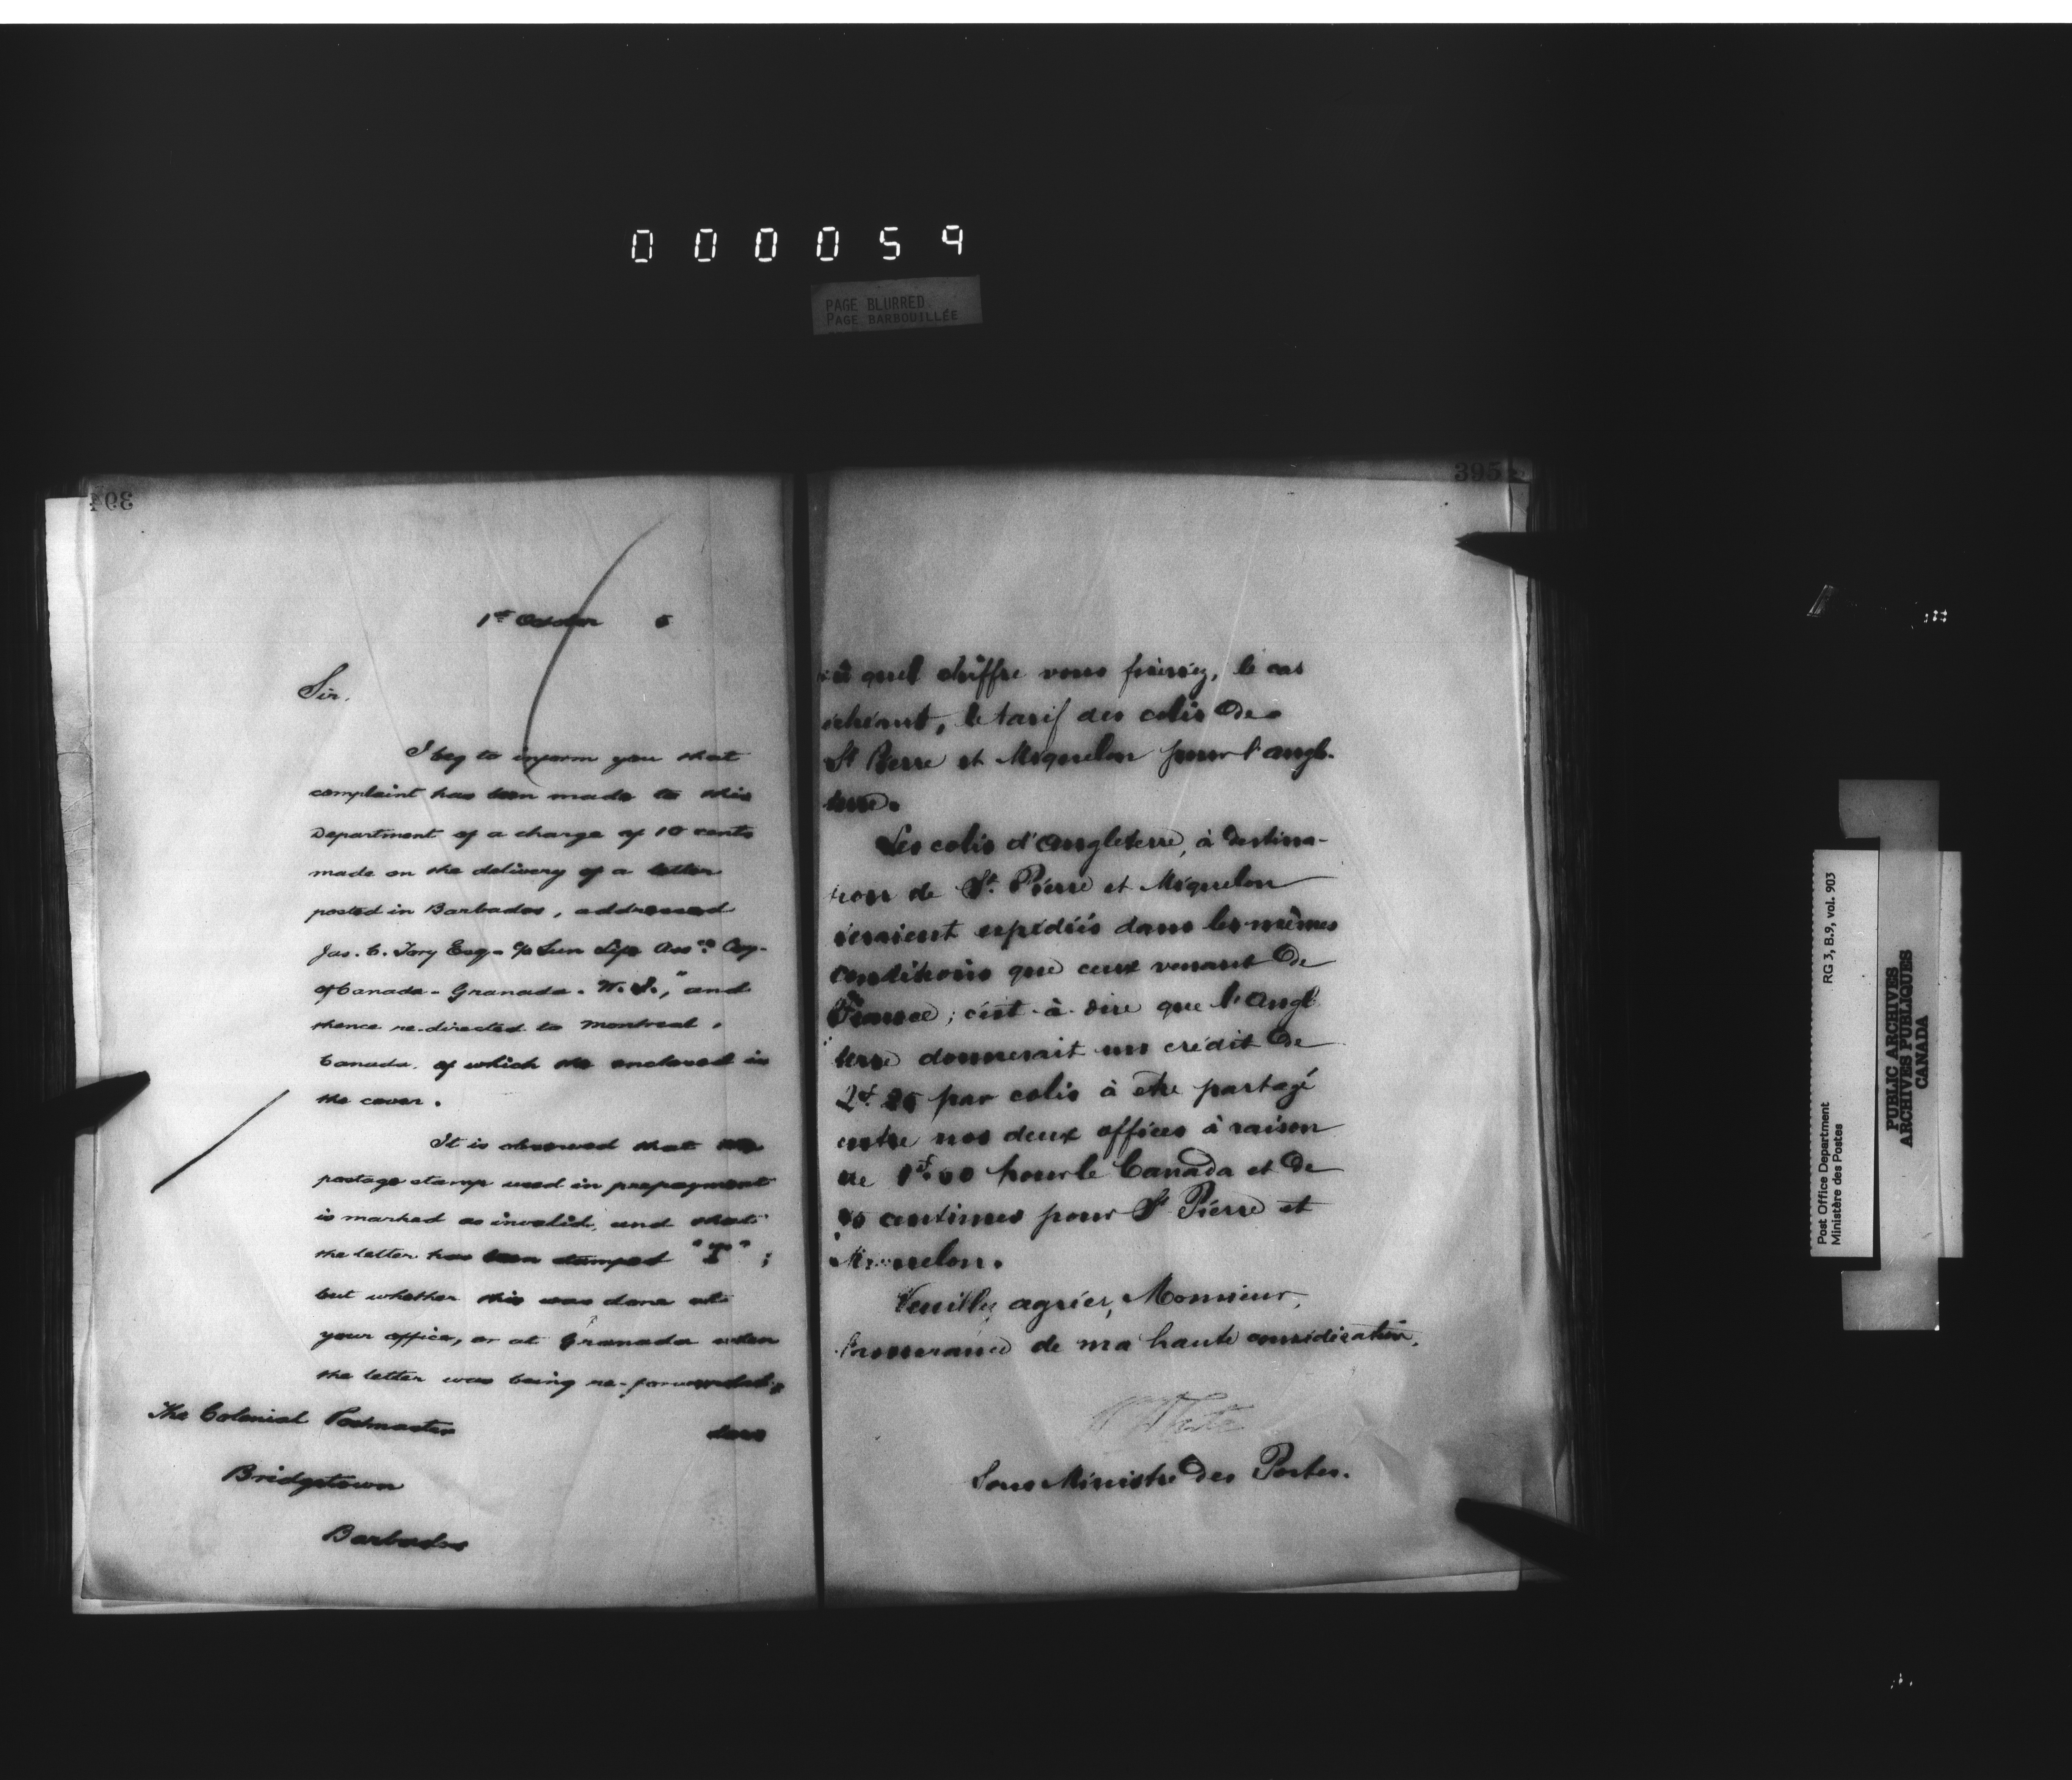 000059
PAGE BLURRED
PAGE BARBOUILLÉE
394
1st October 5
Sir,
I beg to inform you that
complaint has been made to this
Department of a charge of 10 cents
made on the delivery of a letter
posted in Barbados, addressed
Jas. C. Tory Esq - c/o Sun Life Assce Coy -
of Canada - Granada - W. I.," and
thence re-directed to Montreal,
Canada, of which the enclosed is
the cover.
It is observed that the
postage stamp used in prepayment
is marked as invalid, and that
the letter has been stamped "T";
but whether this was done at
your office, or at Granada when
the letter was being re-forwarded,
does
The Colonial Postmaster
Bridgetown
Barbados
395
quel chiffre vous le cas
échéant, le tarif des colis de
St Pierre et Miquelon pour l'Angle-
terre.
Les colis d'Angleterre, à destina-
tion de St. Pierre et Miquelon
seraient expédiés dans les mêmes
conditions que ceux venant de
France; c'est-à-dire que l'Angle
terre donnerait un crédit de
2f. 25 par colis à etre partagé
entre nos deux offices à raison
de pour le Canada et de
centimes pour St Pierre et
Miquelon.
Veuillez agréer, Monsieur,
l'assurance de ma haute considération.
Sous Ministre des Postes.
Post Office Department
Ministère des Postes
RG 3, B.9, vol. 903
PUBLIC ARCHIVES
ARCHIVES PUBLIQUES
CANADA